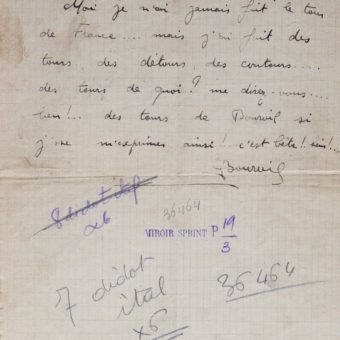 Moi je n'ai jamais fait le tour
de France.... mais j'ai fait des
tours, des détours, des contours....
des tours de quoi? me direz-vous....
bien!... des tours de Bourvil si
j'ose m'exprimer ainsi!.. c'est bête!. hein!...
Bourvil
8 didot ital
x6
36464
MIROIR SPRINT p 19
3
7 didot
ital
x6
36464